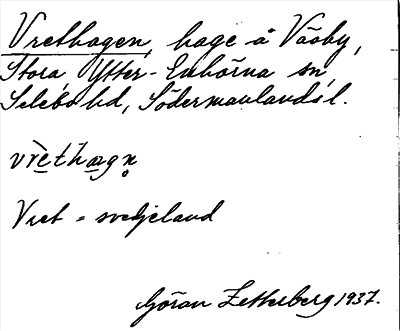 Vrethagen, hage å Väsby,
Stora Ytter-Enhörna sn,
Selebo hd, Södermanlands l.
vrèthagn̥
Vret = svedjeland
Göran Zetterberg 1937.